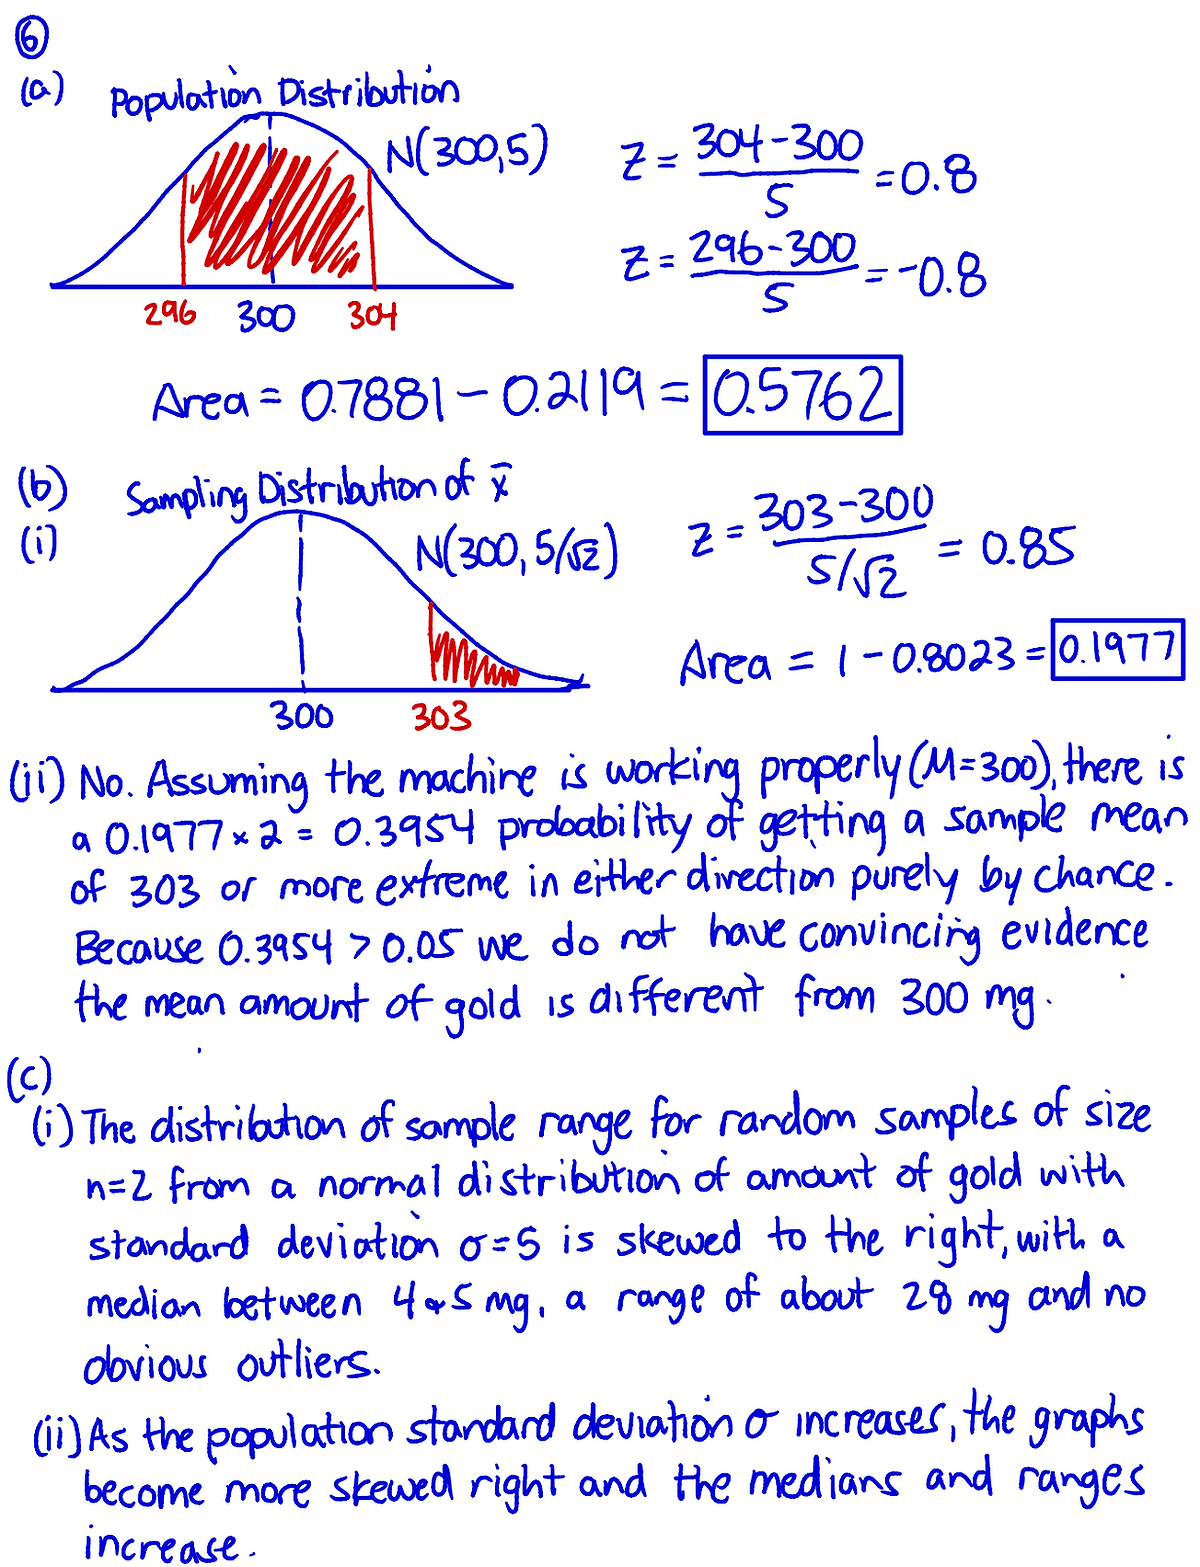 6
(a) Population Distribution
N(300,5)
Z = 304-300 / 5 = 0.8
Z = 296-300 / 5 = -0.8
296 300 304
Area = 0.7881 - 0.2119 = 0.5762
(b) Sampling Distribution of x̄
(i)
N(300, 5/√2)
Z = 303-300 / 5/√2 = 0.85
Area = 1 - 0.8023 = 0.1977
300 303
(ii) No. Assuming the machine is working properly (M=300), there is
a 0.1977 × 2 = 0.3954 probability of getting a sample mean
of 303 or more extreme in either direction purely by chance.
Because 0.3954 > 0.05 we do not have convincing evidence
the mean amount of gold is different from 300 mg.
(c)
(i) The distribution of sample range for random samples of size
n=2 from a normal distribution of amount of gold with
standard deviation σ=5 is skewed to the right, with a
median between 4 & 5 mg, a range of about 28 mg and no
obvious outliers.
(ii) As the population standard deviation σ increases, the graphs
become more skewed right and the medians and ranges
increase.